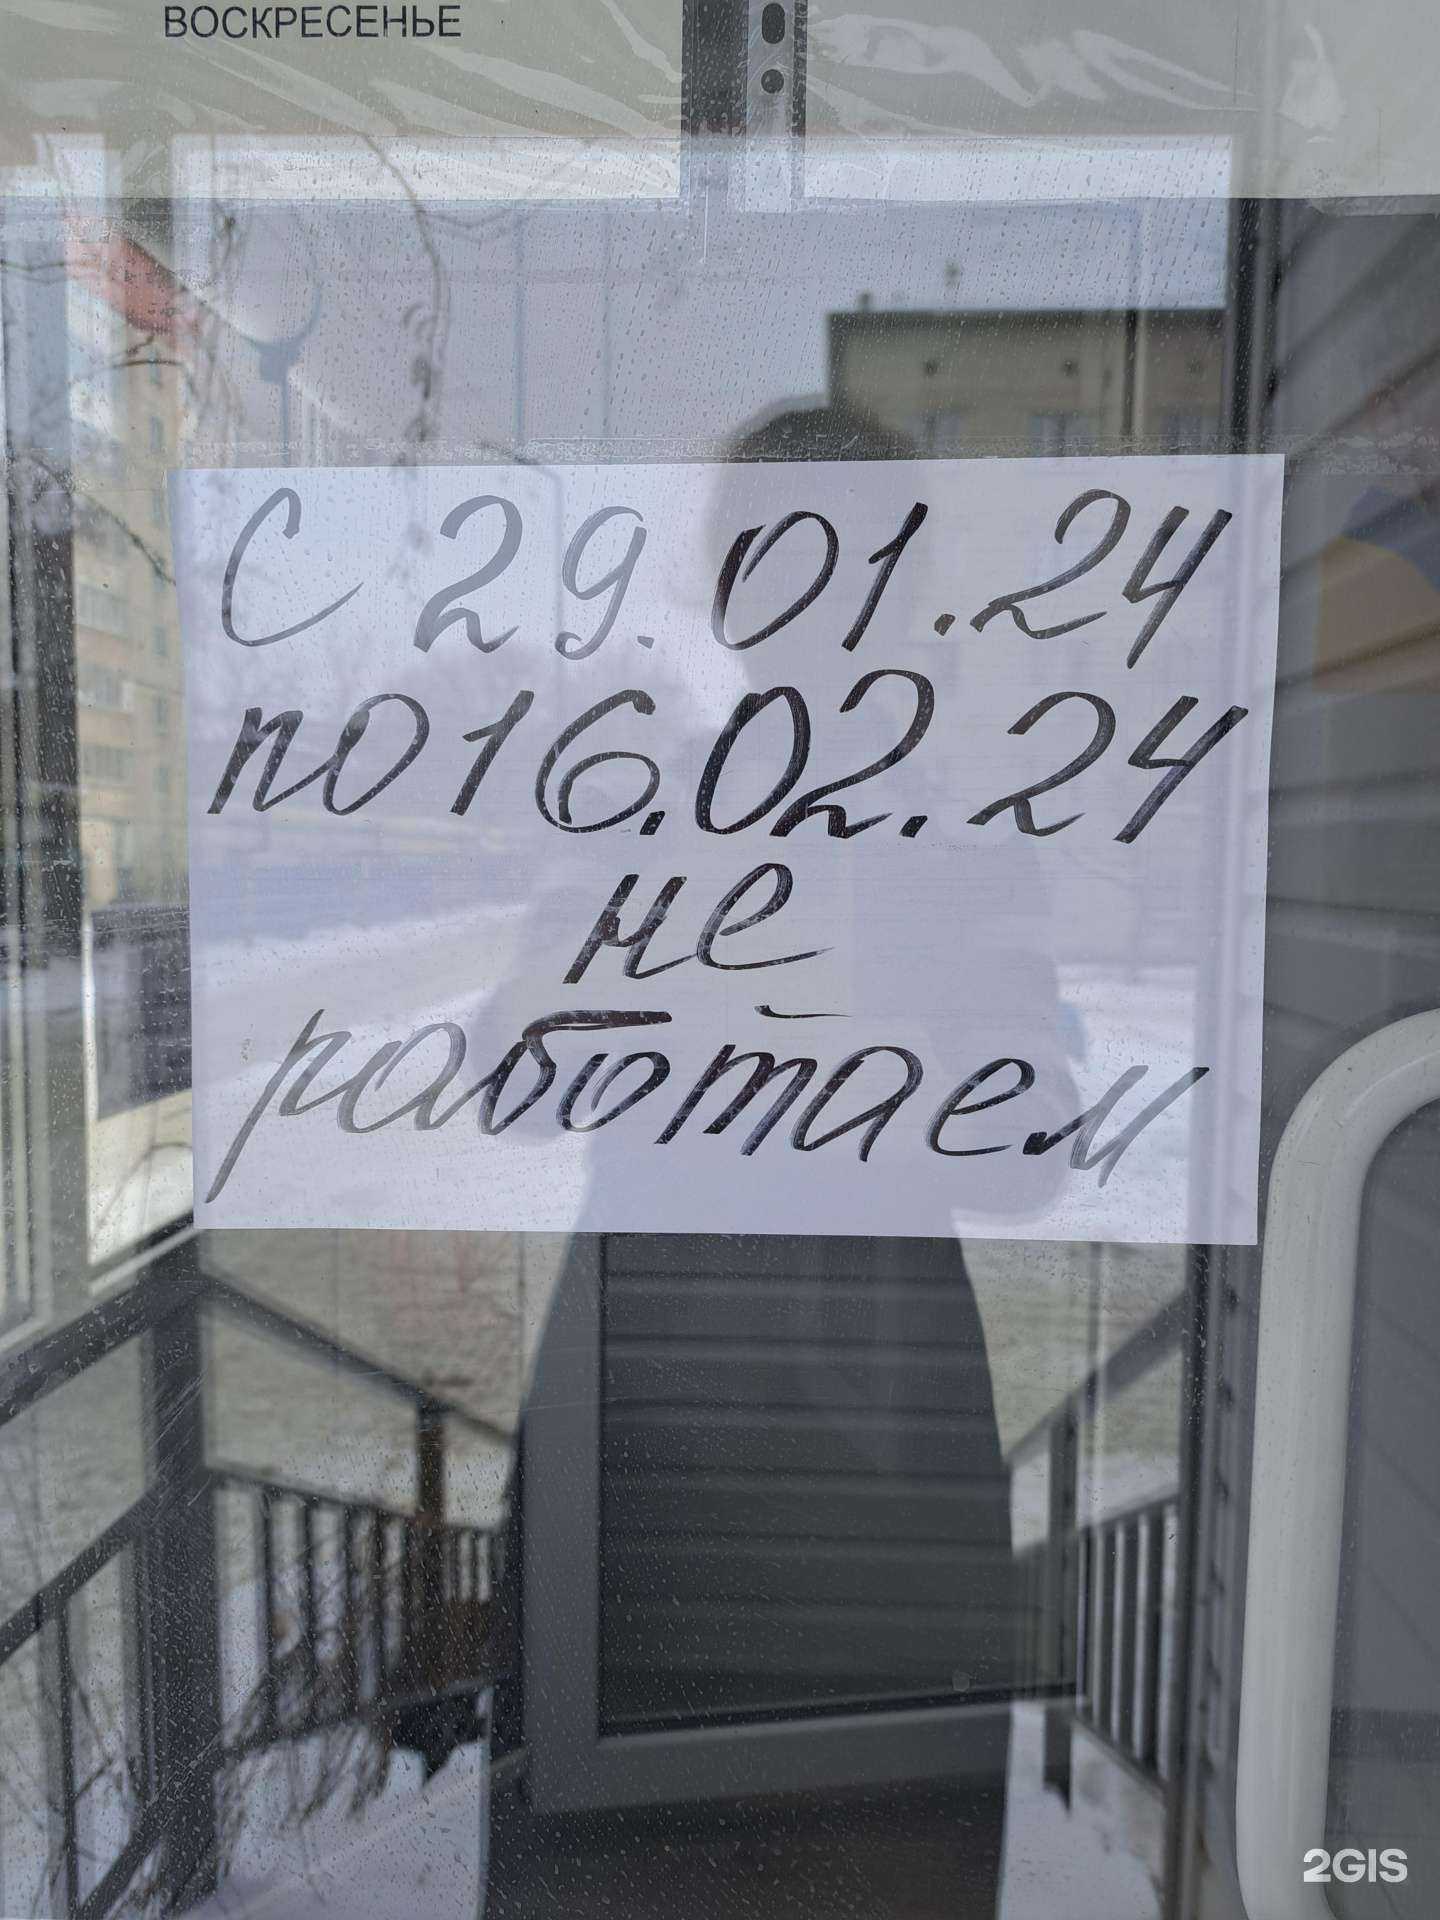 ВОСКРЕСЕНЬЕ
С 29.01.24
по 16.02.24
не
работаем
2GIS